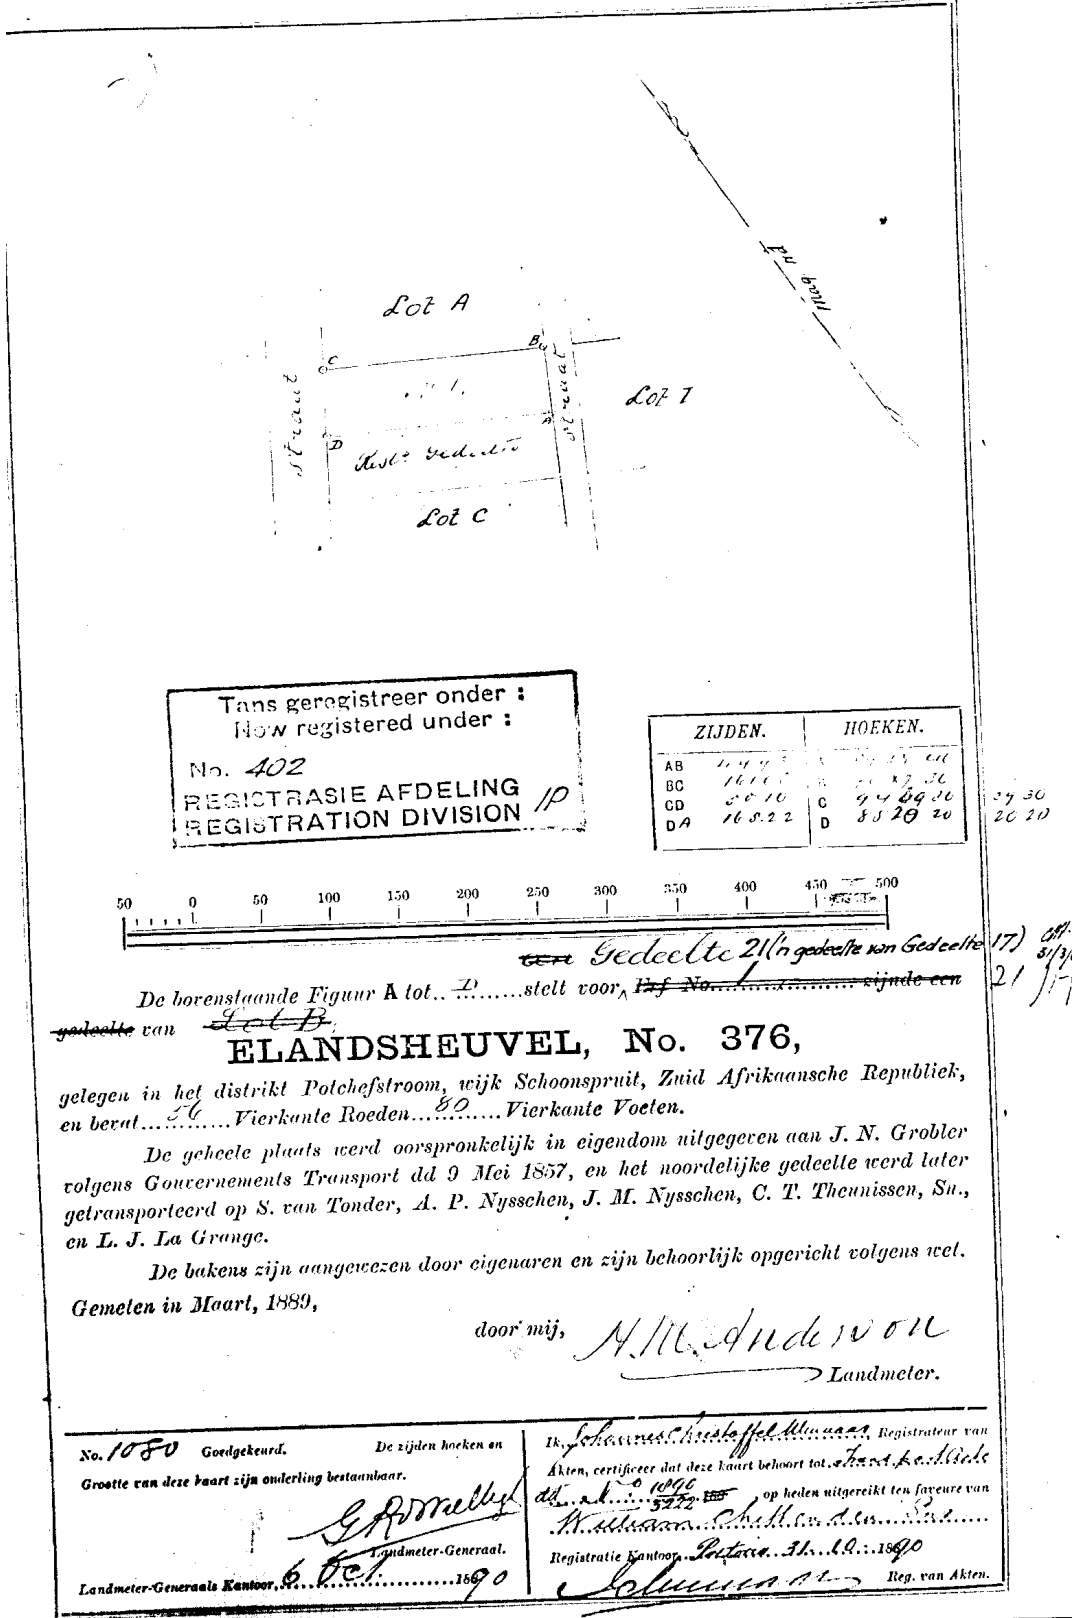 Mag nd
Lot A
C
B
Straat
Straat
Lot I
A
D
Lot C
Tans geregistreer onder :
Now registered under :
No. 402
REGISTRASIE AFDELING
REGISTRATION DIVISION IP
ZIJDEN. HOEKEN.
AB
BC
CD C
DA 165.22 D 85 20 20
29 30
20 20
50 0 50 100 150 200 250 300 350 400 450 500
een Gedeelte 21 ('n gedeelte van Gedeelte 17)
De bovenstaande Figuur A tot D stelt voor, Erf No. 1 zijnde een 21
gedeelte van Lot B,
ELANDSHEUVEL, No. 376,
gelegen in het distrikt Potchefstroom, wijk Schoonspruit, Zuid Afrikaansche Republiek,
en bevat 56 Vierkante Roeden 80 Vierkante Voeten.
De geheele plaats werd oorspronkelijk in eigendom uitgegeven aan J. N. Grobler
volgens Gouvernements Transport dd 9 Mei 1857, en het noordelijke gedeelte werd later
getransporteerd op S. van Tonder, A. P. Nysschen, J. M. Nysschen, C. T. Theunissen, Sn.,
en L. J. La Grange.
De bakens zijn aangewezen door eigenaren en zijn behoorlijk opgericht volgens wet.
Gemeten in Maart, 1889,
door mij, H. M. Anderson
Landmeter.
No. 1080 Goedgekeurd. De zijden hoeken en
Grootte van deze kaart zijn onderling bestaanbaar.
Landmeter-Generaal.
Landmeter-Generaals Kantoor, 6 Oct. 1890
Ik, Johannes Christoffel Minnaar, Registrateur van
Akten, certificeer dat deze kaart behoort tot
dd 1896 op heden uitgereikt ten faveure van
William
Registratie Kantoor, Pretoria 31.10.1890
Reg. van Akten.